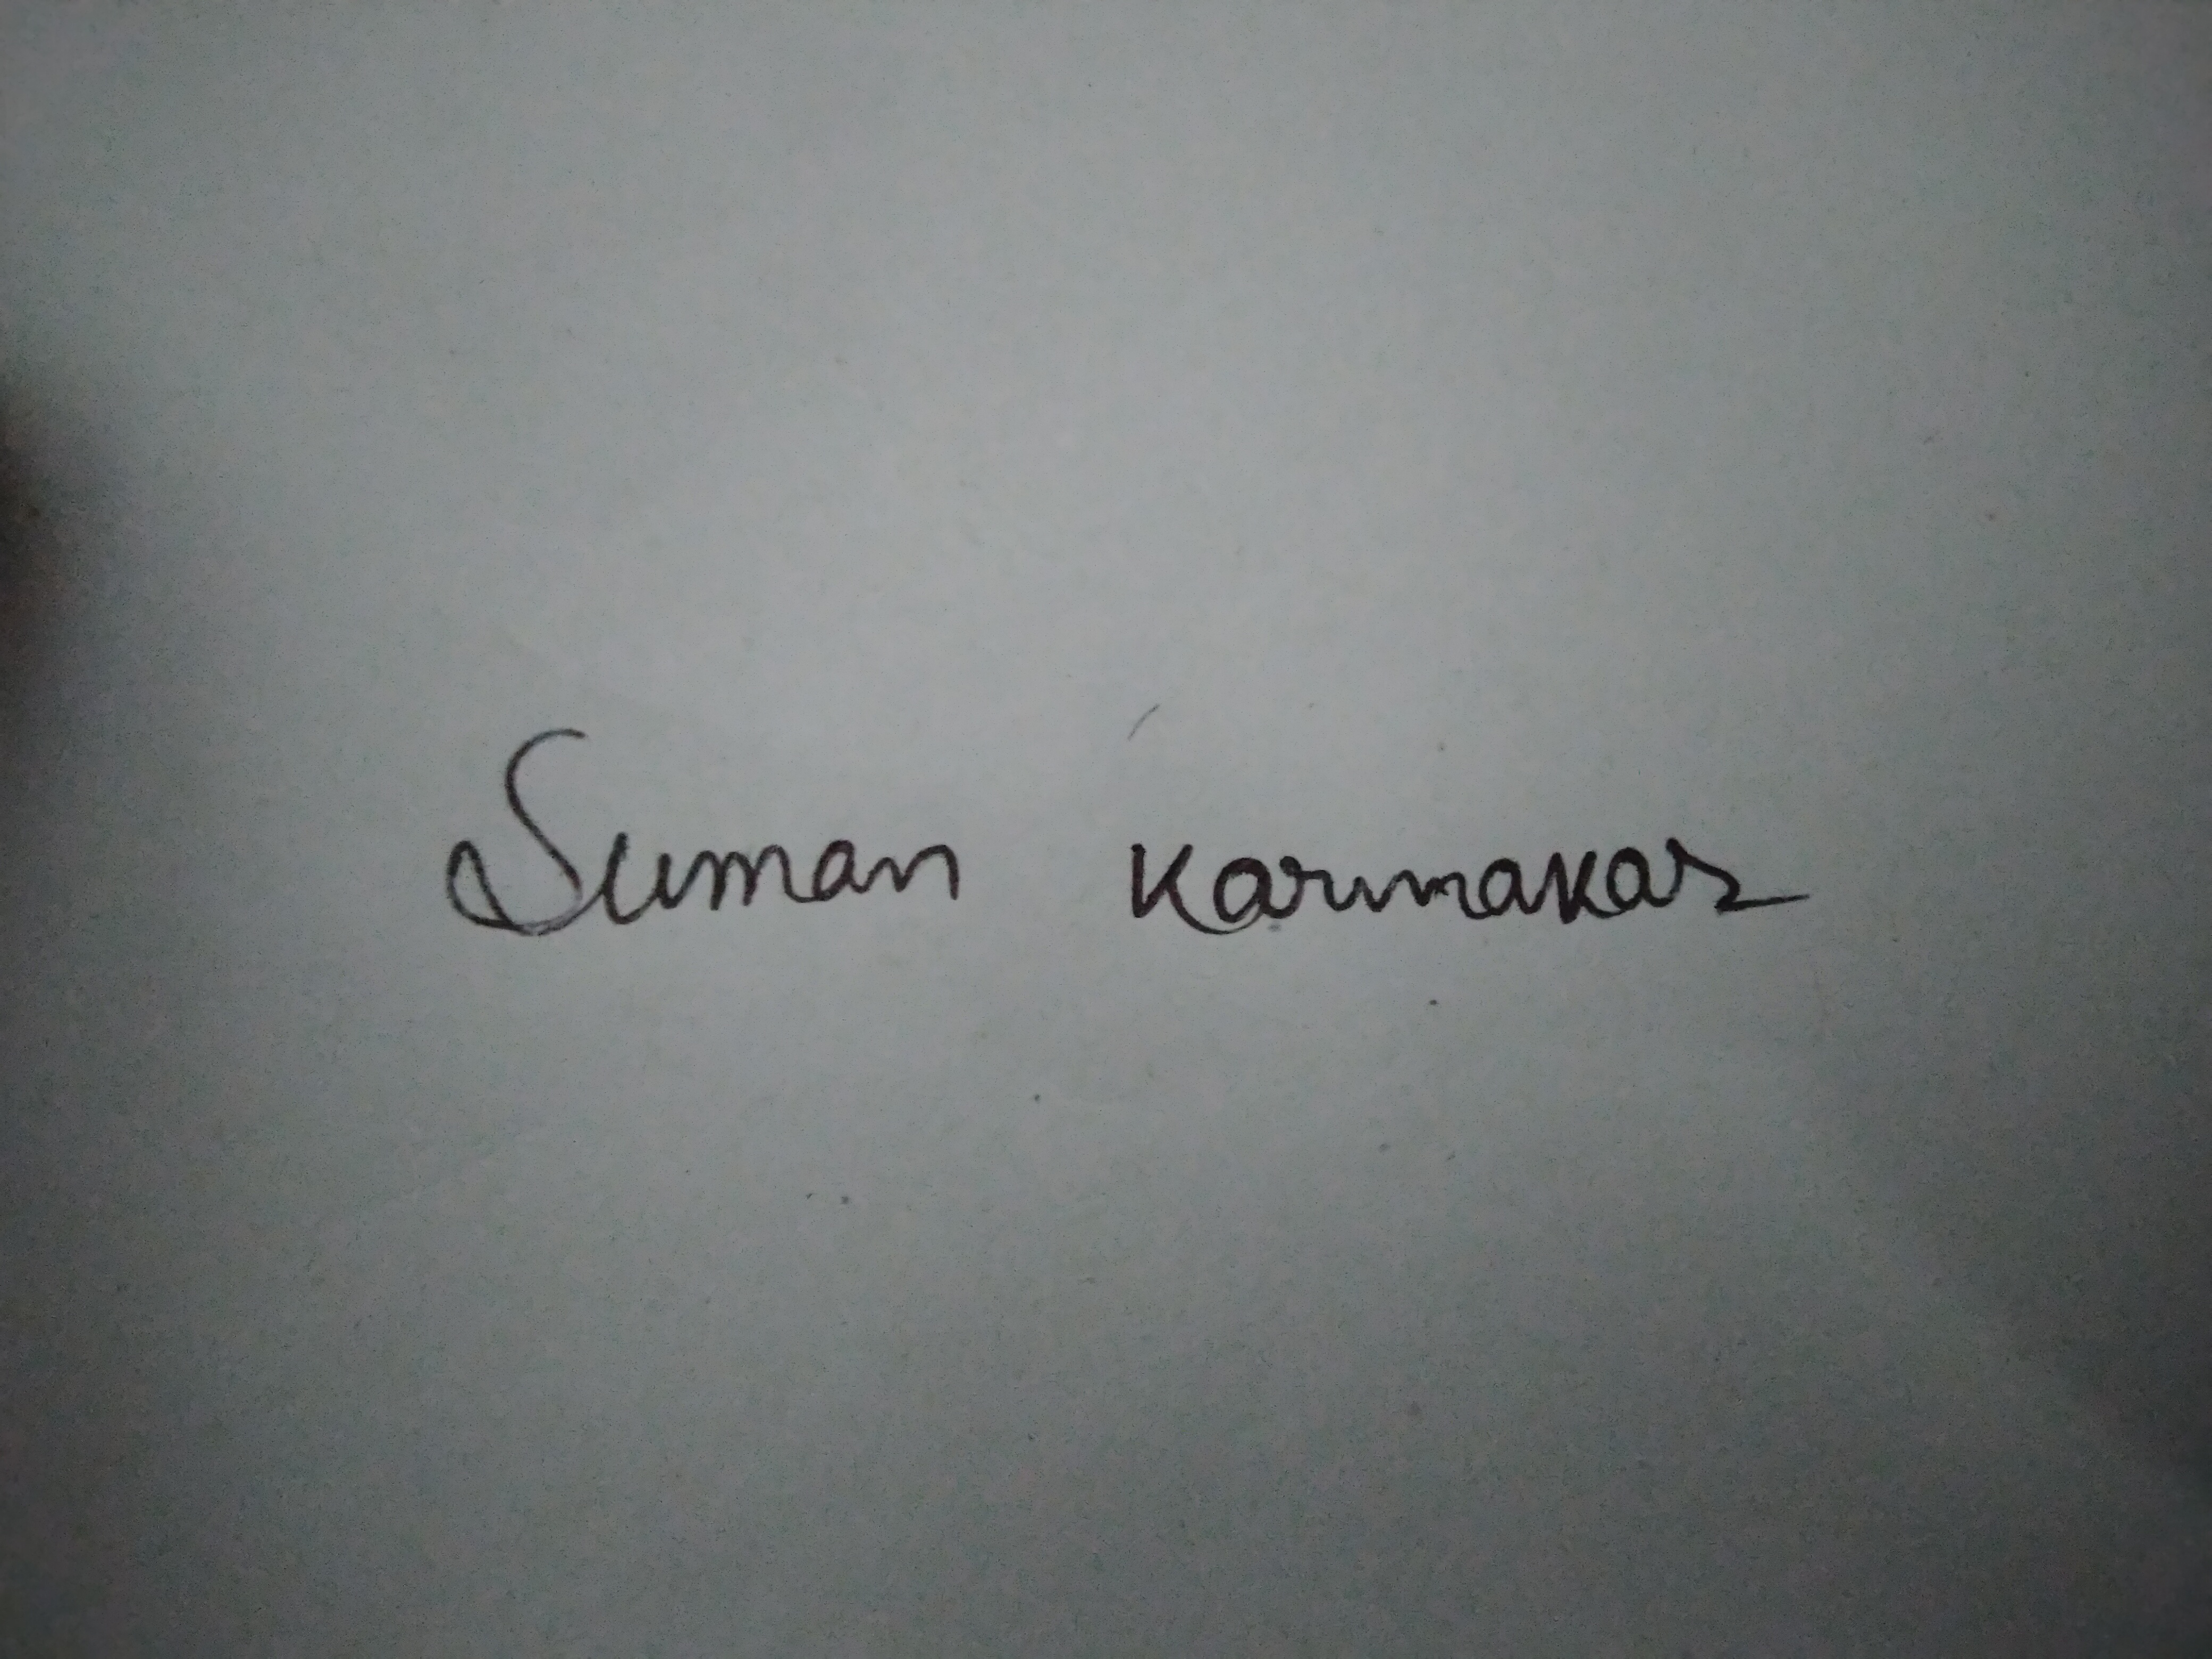 Suman Karmakar